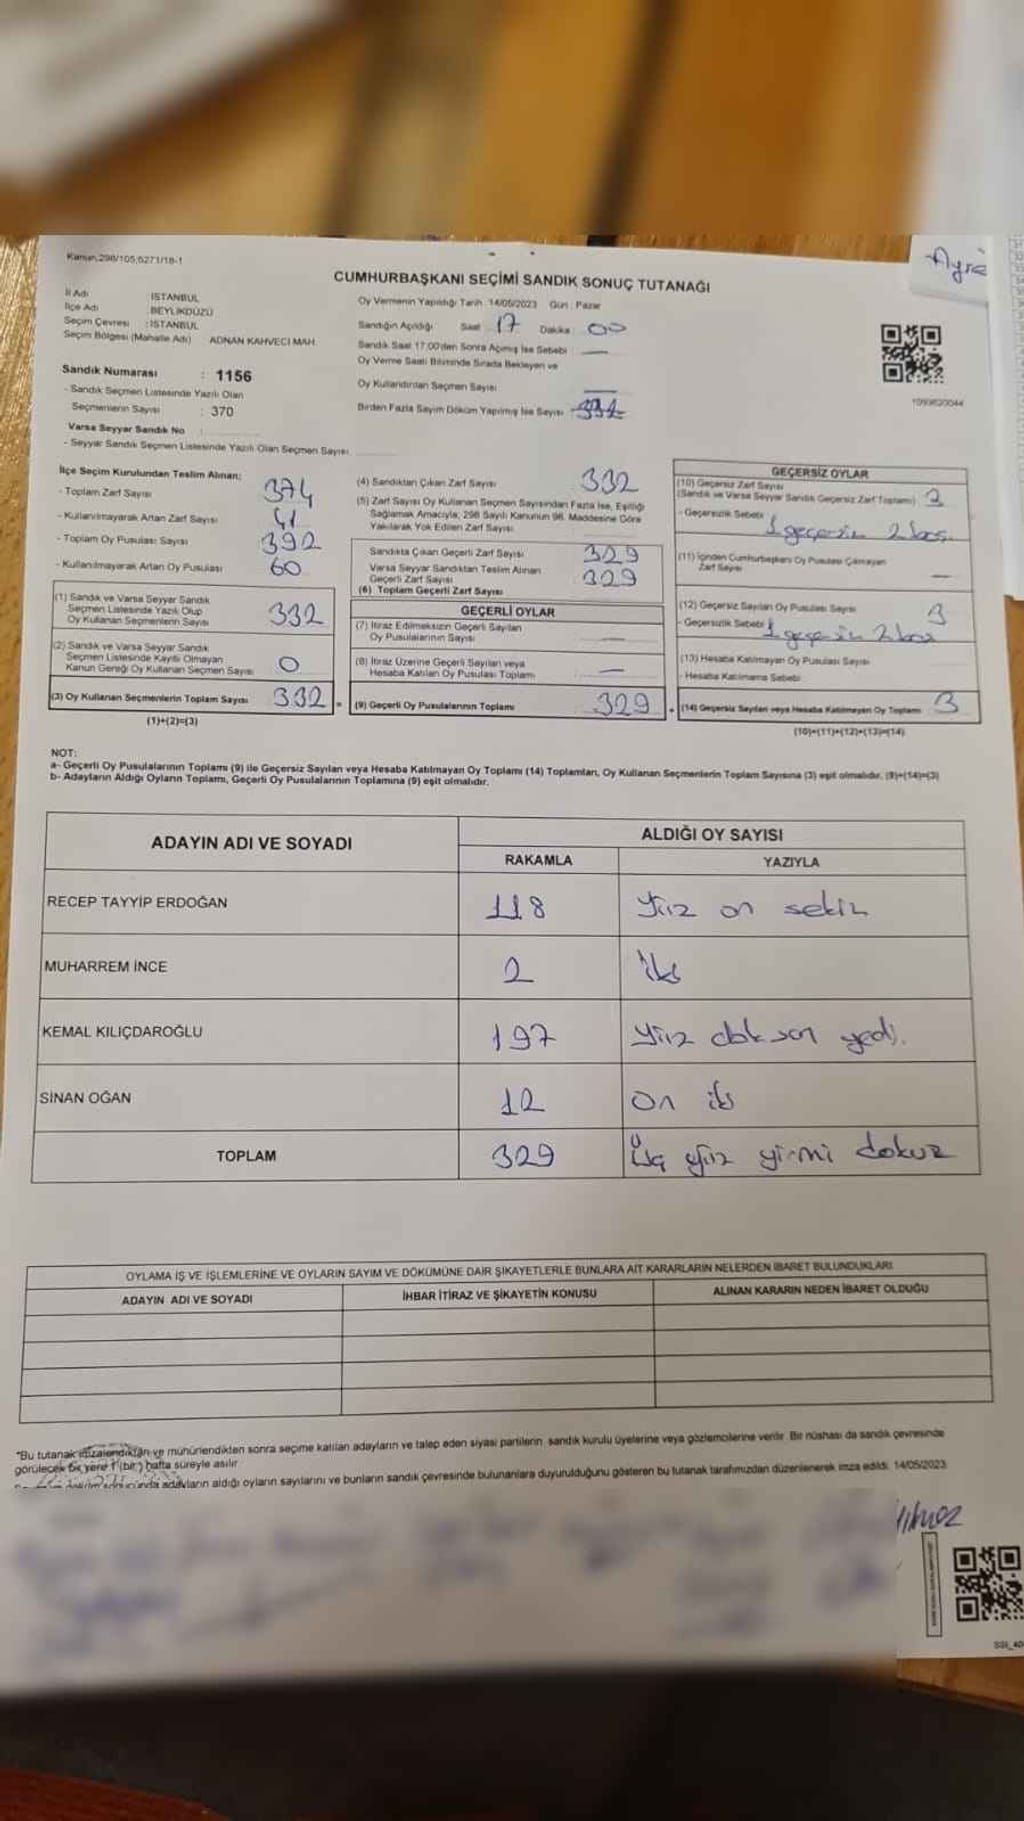 Ayrı
Kanun;298/105;6271/18-1
CUMHURBAŞKANI SEÇİMİ SANDIK SONUÇ TUTANAĞI
İl Adı : İSTANBUL
İlçe Adı : BEYLİKDÜZÜ
Seçim Çevresi : İSTANBUL
Seçim Bölgesi (Mahalle Adı) ADNAN KAHVECİ MAH.
Oy Vermenin Yapıldığı Tarih : 14/05/2023 Gün : Pazar
Sandığın Açıldığı Saat 17 Dakika : 00
Sandık Saat 17:00'den Sonra Açılmış İse Sebebi : —
Oy Verme Saati Bitiminde Sırada Bekleyen ve
Oy Kullandırılan Seçmen Sayısı —
Birden Fazla Sayım Döküm Yapılmış İse Sayısı
Sandık Numarası : 1156
- Sandık Seçmen Listesinde Yazılı Olan
Seçmenlerin Sayısı : 370
Varsa Seyyar Sandık No :
- Seyyar Sandık Seçmen Listesinde Yazılı Olan Seçmen Sayısı
İlçe Seçim Kurulundan Teslim Alınan;
- Toplam Zarf Sayısı 374
- Kullanılmayarak Artan Zarf Sayısı
- Toplam Oy Pusulası Sayısı 392
- Kullanılmayarak Artan Oy Pusulası 60
(1) Sandık ve Varsa Seyyar Sandık
Seçmen Listesinde Yazılı Olup
Oy Kullanan Seçmenlerin Sayısı 332
(2) Sandık ve Varsa Seyyar Sandık
Seçmen Listesinde Kayıtlı Olmayan
Kanun Gereği Oy Kullanan Seçmen Sayısı 0
(3) Oy Kullanan Seçmenlerin Toplam Sayısı 332
(1)+(2)=(3)
(4) Sandıktan Çıkan Zarf Sayısı 332
(5) Zarf Sayısı Oy Kullanan Seçmen Sayısından Fazla İse, Eşitliği
Sağlamak Amacıyla; 298 Sayılı Kanunun 98. Maddesine Göre
Yakılarak Yok Edilen Zarf Sayısı
Sandıkta Çıkan Geçerli Zarf Sayısı 329
Varsa Seyyar Sandıktan Teslim Alınan
Geçerli Zarf Sayısı 329
(6) Toplam Geçerli Zarf Sayısı
GEÇERLİ OYLAR
(7) İtiraz Edilmeksizin Geçerli Sayılan
Oy Pusulalarının Sayısı —
(8) İtiraz Üzerine Geçerli Sayılan veya
Hesaba Katılan Oy Pusulası Toplamı —
(9) Geçerli Oy Pusulalarının Toplamı 329
GEÇERSİZ OYLAR
(10) Geçersiz Zarf Sayısı
(Sandık ve Varsa Seyyar Sandık Geçersiz Zarf Toplamı)
- Geçersizlik Sebebi
1 geçersiz 2 boş.
(11) İçinden Cumhurbaşkanı Oy Pusulası Çıkmayan
Zarf Sayısı —
(12) Geçersiz Sayılan Oy Pusulası Sayısı 3
- Geçersizlik Sebebi 1 geçersiz 2 boş
(13) Hesaba Katılmayan Oy Pusulası Sayısı
- Hesaba Katılmama Sebebi
(14) Geçersiz Sayılan veya Hesaba Katılmayan Oy Toplamı 3
(10)+(11)+(12)+(13)=(14)
NOT:
a- Geçerli Oy Pusulalarının Toplamı (9) ile Geçersiz Sayılan veya Hesaba Katılmayan Oy Toplamı (14) Toplamları, Oy Kullanan Seçmenlerin Toplam Sayısına (3) eşit olmalıdır. (9)+(14)=(3)
b- Adayların Aldığı Oyların Toplamı, Geçerli Oy Pusulalarının Toplamına (9) eşit olmalıdır.
ADAYIN ADI VE SOYADI ALDIĞI OY SAYISI
RAKAMLA YAZIYLA
RECEP TAYYİP ERDOĞAN 118 Yüz on sekiz
MUHARREM İNCE 2 iki
KEMAL KILIÇDAROĞLU 197 Yüz doksan yedi.
SİNAN OĞAN 12 On iki
TOPLAM 329 Üç yüz yirmi dokuz
OYLAMA İŞ VE İŞLEMLERİNE VE OYLARIN SAYIM VE DÖKÜMÜNE DAİR ŞİKAYETLERLE BUNLARA AİT KARARLARIN NELERDEN İBARET BULUNDUKLARI
ADAYIN ADI VE SOYADI İHBAR İTİRAZ VE ŞİKAYETİN KONUSU ALINAN KARARIN NEDEN İBARET OLDUĞU
*Bu tutanak imzalandıktan ve mühürlendikten sonra seçime katılan adayların ve talep eden siyasi partilerin sandık kurulu üyelerine veya gözlemcilerine verilir. Bir nüshası da sandık çevresinde
görülecek bir yere 1 (bir) hafta süreyle asılır.
adayların aldığı oyların sayılarını ve bunların sandık çevresinde bulunanlara duyurulduğunu gösteren bu tutanak tarafımızdan düzenlenerek imza edildi. 14/05/2023